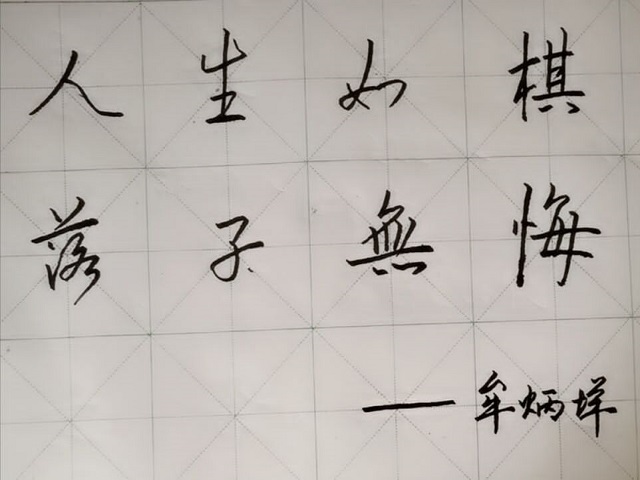 人生如棋
落子無悔
——牟炳垟